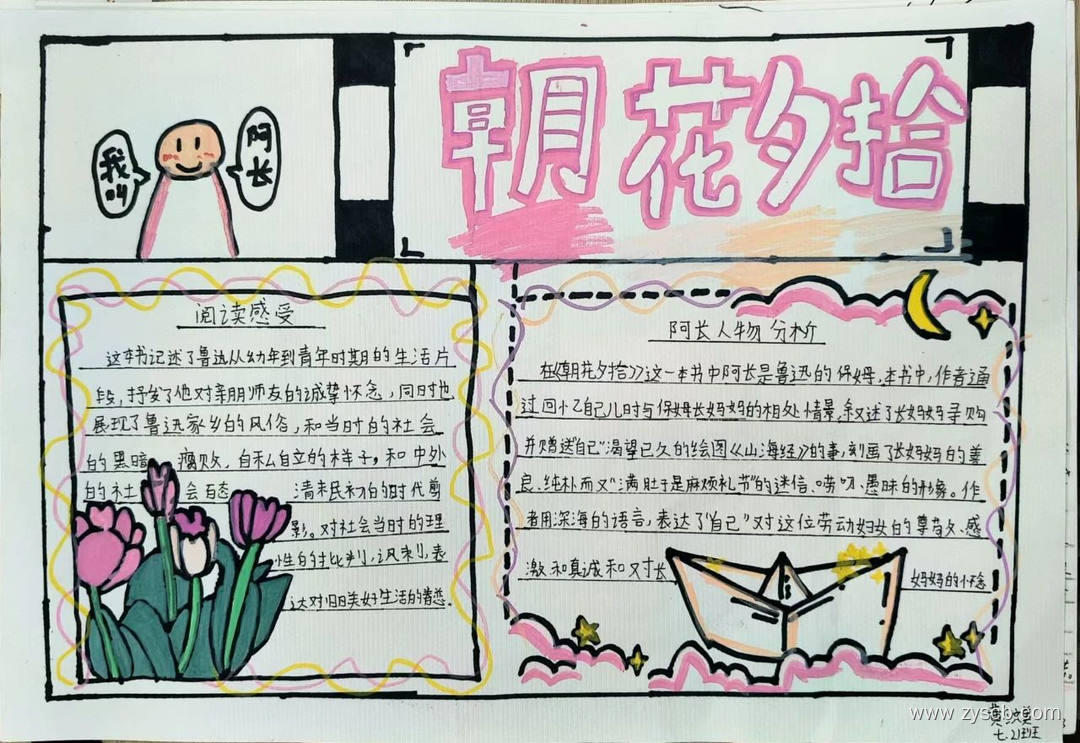 朝花夕拾
我叫
阿长
阅读感受
这本书记述了鲁迅从幼年到青年时期的生活片
段,抒发了他对亲朋师友的诚挚怀念,同时也
展现了鲁迅家乡的风俗,和当时的社会
的黑暗 腐败,自私自立的样子,和中外
的社 会百态 清末民初的时代剪
影。对社会当时的理
性的批判,讽刺,表
达对旧日美好生活的眷恋.
阿长人物分析
在《朝花夕拾》这一本书中阿长是鲁迅的保姆,本书中,作者通
过回忆自己儿时与保姆长妈妈的相处情景,叙述了长妈妈寻购
并赠送自己"渴望已久的绘图《山海经》的事,刻画了长妈妈的善
良、纯朴而又"满肚子是麻烦礼节"的迷信、唠叨、愚昧的形象。作
者用深海的语言,表达了"自己"对这位劳动妇女的尊敬、感
激和真诚和对长 妈妈的怀念
七.21班
www.zyscb.com